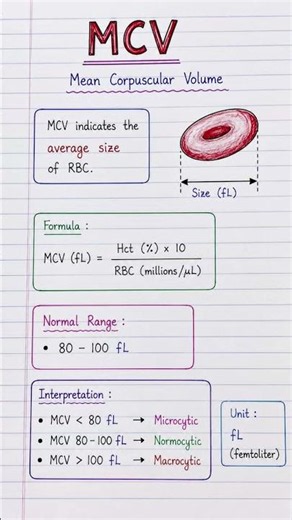 MCV
Mean Corpuscular Volume
MCV indicates the
average size
of RBC.
Size (fL)
Formula :
MCV (fL) = Hct (%) x 10
RBC (millions/μL)
Normal Range :
• 80 – 100 fL
Interpretation :
• MCV < 80 fL → Microcytic
• MCV 80-100 fL → Normocytic
• MCV > 100 fL → Macrocytic
Unit :
fL
(femtoliter)